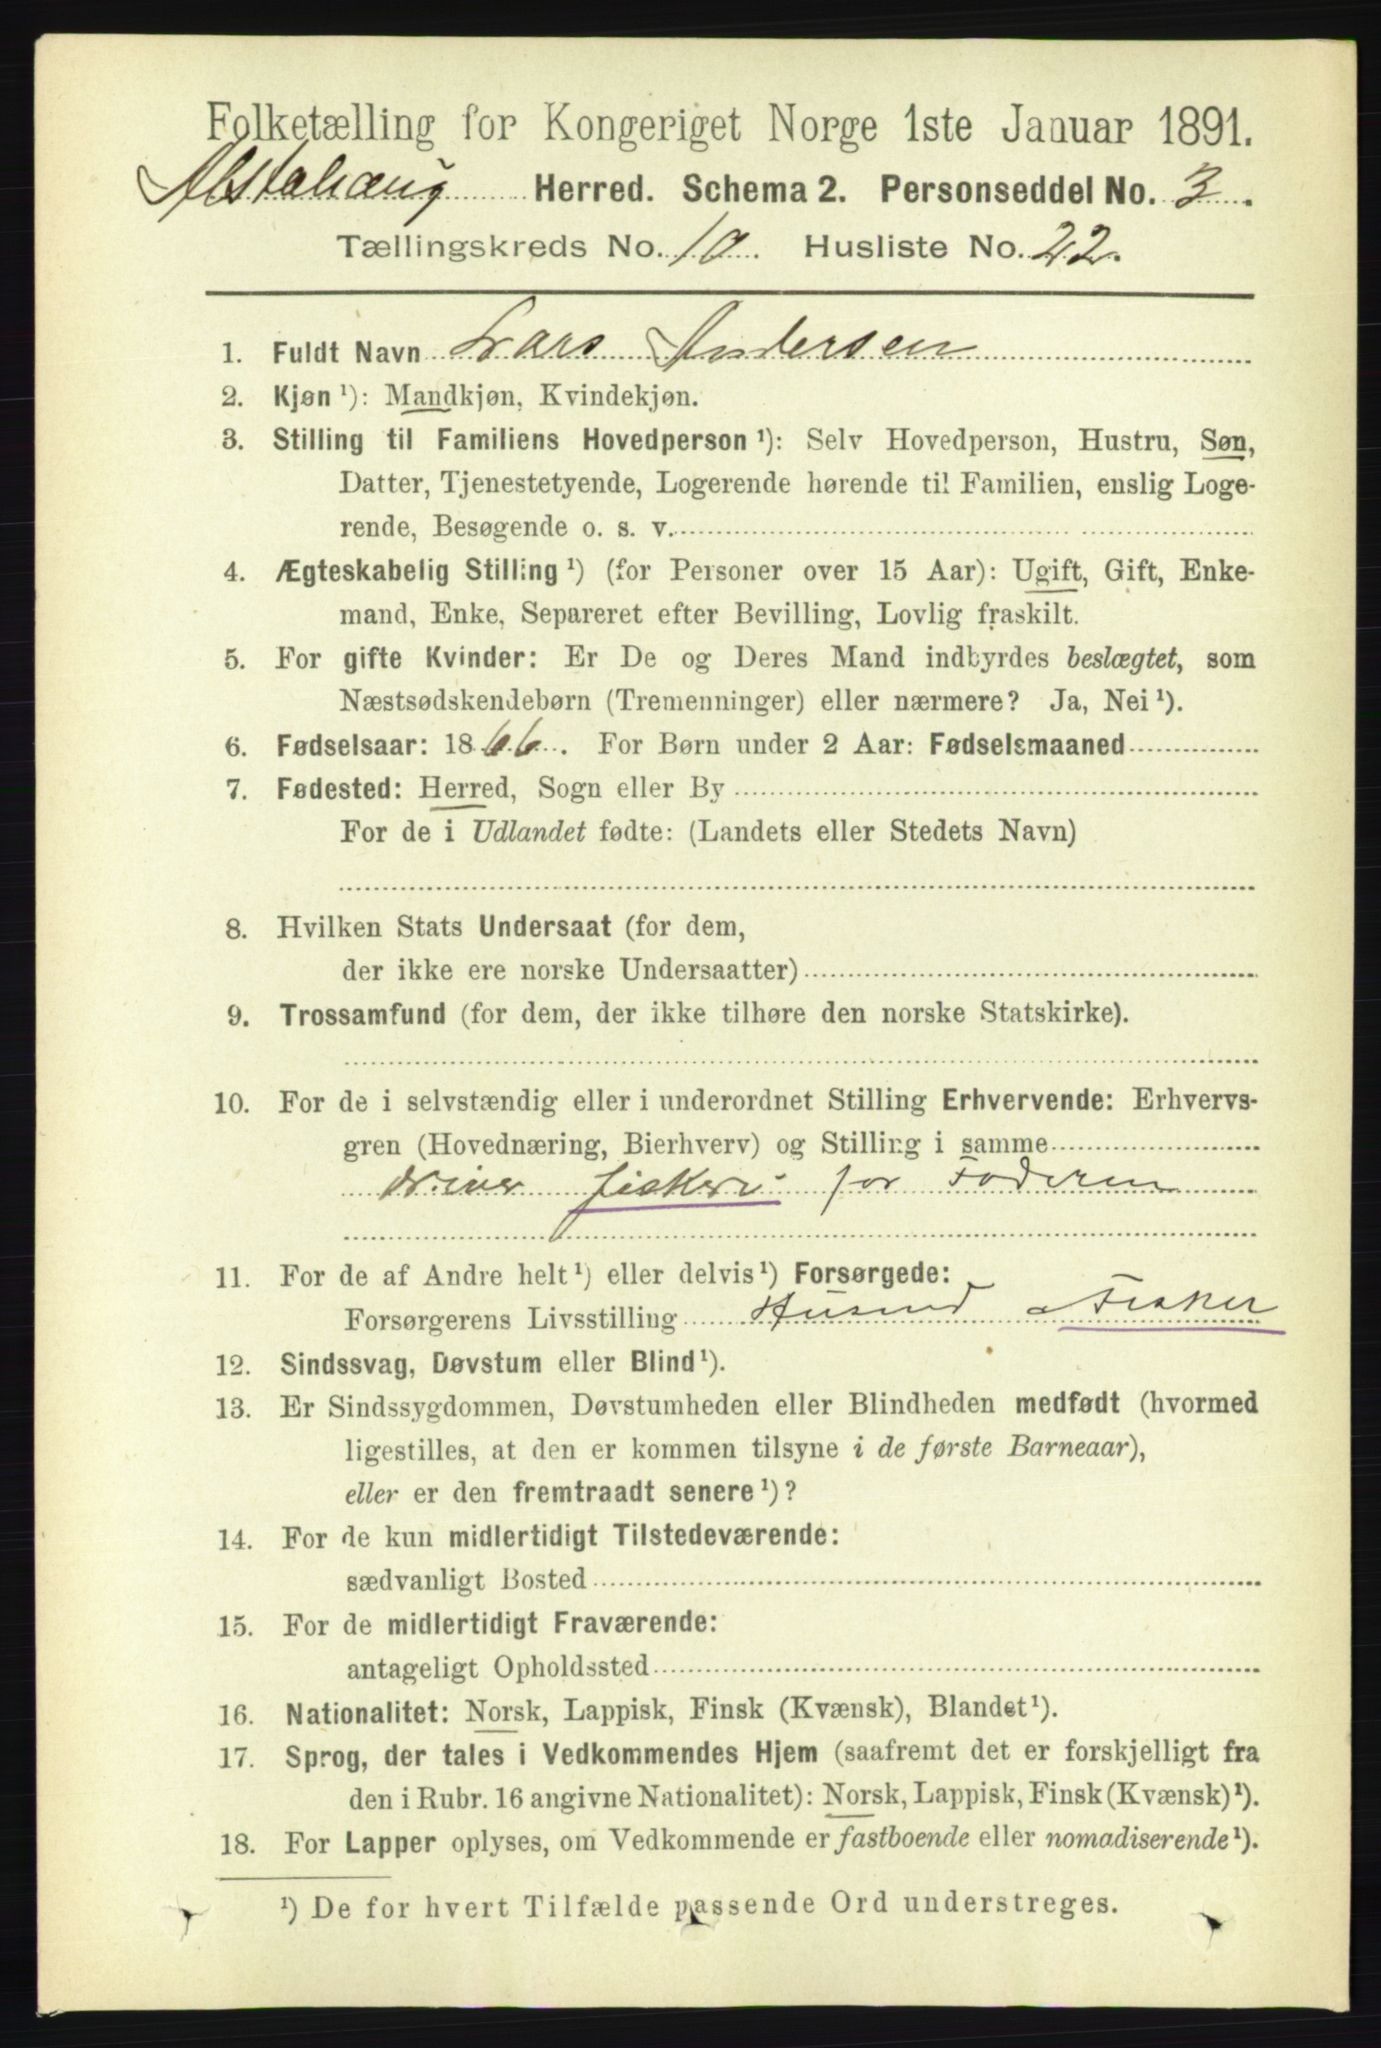 Folketælling for Kongeriget Norge 1ste Januar 1891.
Alstahaug Herred. Schema 2. Personseddel No. 3.
Tællingskreds No. 10. Husliste No. 22.
1. Fuldt Navn Lars Andersen
2. Kjøn ¹): Mandkjøn, Kvindekjøn.
3. Stilling til Familiens Hovedperson ¹): Selv Hovedperson, Hustru, Søn,
Datter, Tjenestetyende, Logerende hørende til Familien, enslig Loge-
rende, Besøgende o. s. v.
4. Ægteskabelig Stilling ¹) (for Personer over 15 Aar): Ugift, Gift, Enke-
mand, Enke, Separeret efter Bevilling, Lovlig fraskilt.
5. For gifte Kvinder: Er De og Deres Mand indbyrdes beslægtet, som
Næstsødskendebørn (Tremenninger) eller nærmere? Ja, Nei ¹).
6. Fødselsaar: 1866. For Børn under 2 Aar: Fødselsmaaned
7. Fødested: Herred, Sogn eller By
For de i Udlandet fødte: (Landets eller Stedets Navn)
8. Hvilken Stats Undersaat (for dem,
der ikke ere norske Undersaatter)
9. Trossamfund (for dem, der ikke tilhøre den norske Statskirke).
10. For de i selvstændig eller i underordnet Stilling Erhvervende: Erhvervs-
gren (Hovednæring, Bierhverv) og Stilling i samme
driver fiskeri for Faderen
11. For de af Andre helt ¹) eller delvis ¹) Forsørgede:
Forsørgerens Livsstilling Husmd Fisker
12. Sindssvag, Døvstum eller Blind ¹).
13. Er Sindssygdommen, Døvstumheden eller Blindheden medfødt (hvormed
ligestilles, at den er kommen tilsyne i de første Barneaar),
eller er den fremtraadt senere ¹)?
14. For de kun midlertidigt Tilstedeværende:
sædvanligt Bosted
15. For de midlertidigt Fraværende:
antageligt Opholdssted
16. Nationalitet: Norsk, Lappisk, Finsk (Kvænsk), Blandet ¹).
17. Sprog, der tales i Vedkommendes Hjem (saafremt det er forskjelligt fra
den i Rubr. 16 angivne Nationalitet): Norsk, Lappisk, Finsk (Kvænsk) ¹).
18. For Lapper oplyses, om Vedkommende er fastboende eller nomadiserende ¹).
¹) De for hvert Tilfælde passende Ord understreges.